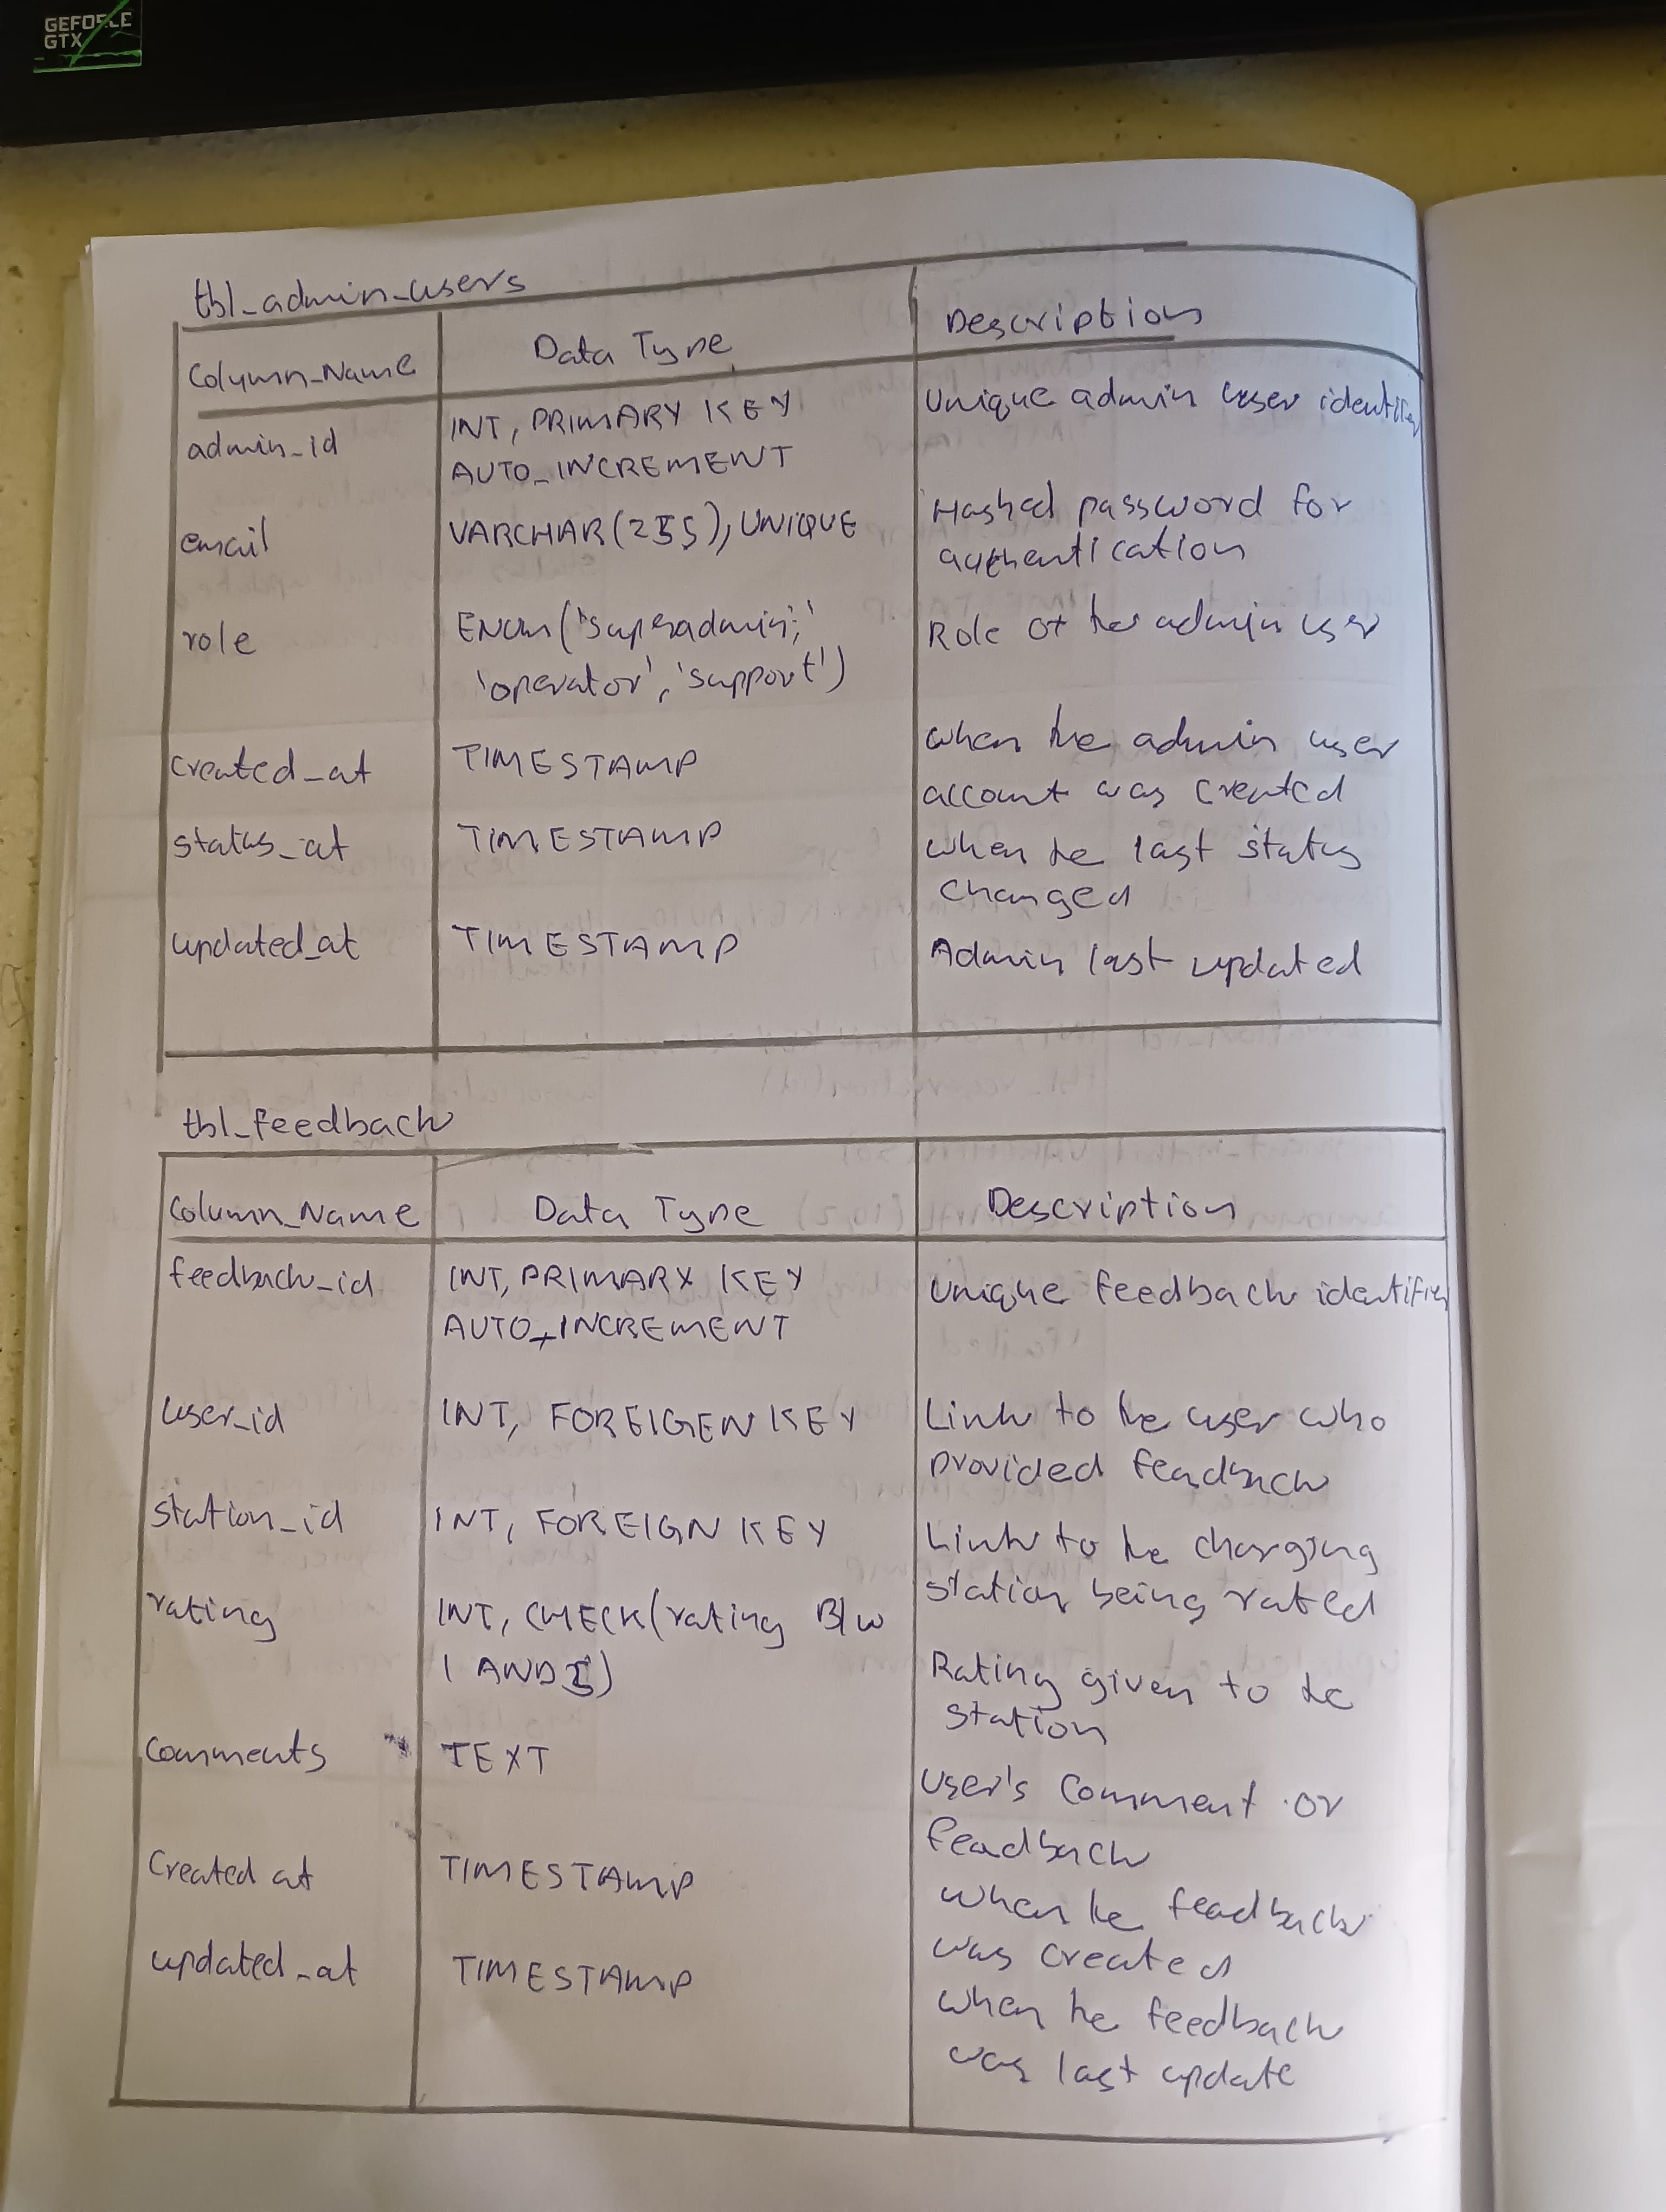 GEFORCE
GTX
tbl_admin_users
Column_Name Data Type Description
admin_id INT, PRIMARY KEY Unique admin user identifier
AUTO_INCREMENT
email VARCHAR(255), UNIQUE Hashed password for
authentication
role ENUM('superadmin', Role of the admin user
'operator', 'support')
created_at TIMESTAMP when the admin user
account was created
status_at TIMESTAMP when the last status
changed
updated_at TIMESTAMP Admin last updated
tbl_feedback
Column_Name Data Type Description
feedback_id INT, PRIMARY KEY Unique feedback identifier
AUTO_INCREMENT
user_id INT, FOREIGEN KEY Link to the user who
provided feadback
station_id INT, FOREIGN KEY Link to the charging
station being rated
rating INT, CHECK(rating B/w
1 AND 5) Rating given to the
station
Comments TEXT
User's Comment or
feadback
Created at TIMESTAMP when the feadback
was created
updated_at TIMESTAMP when the feedback
was last update